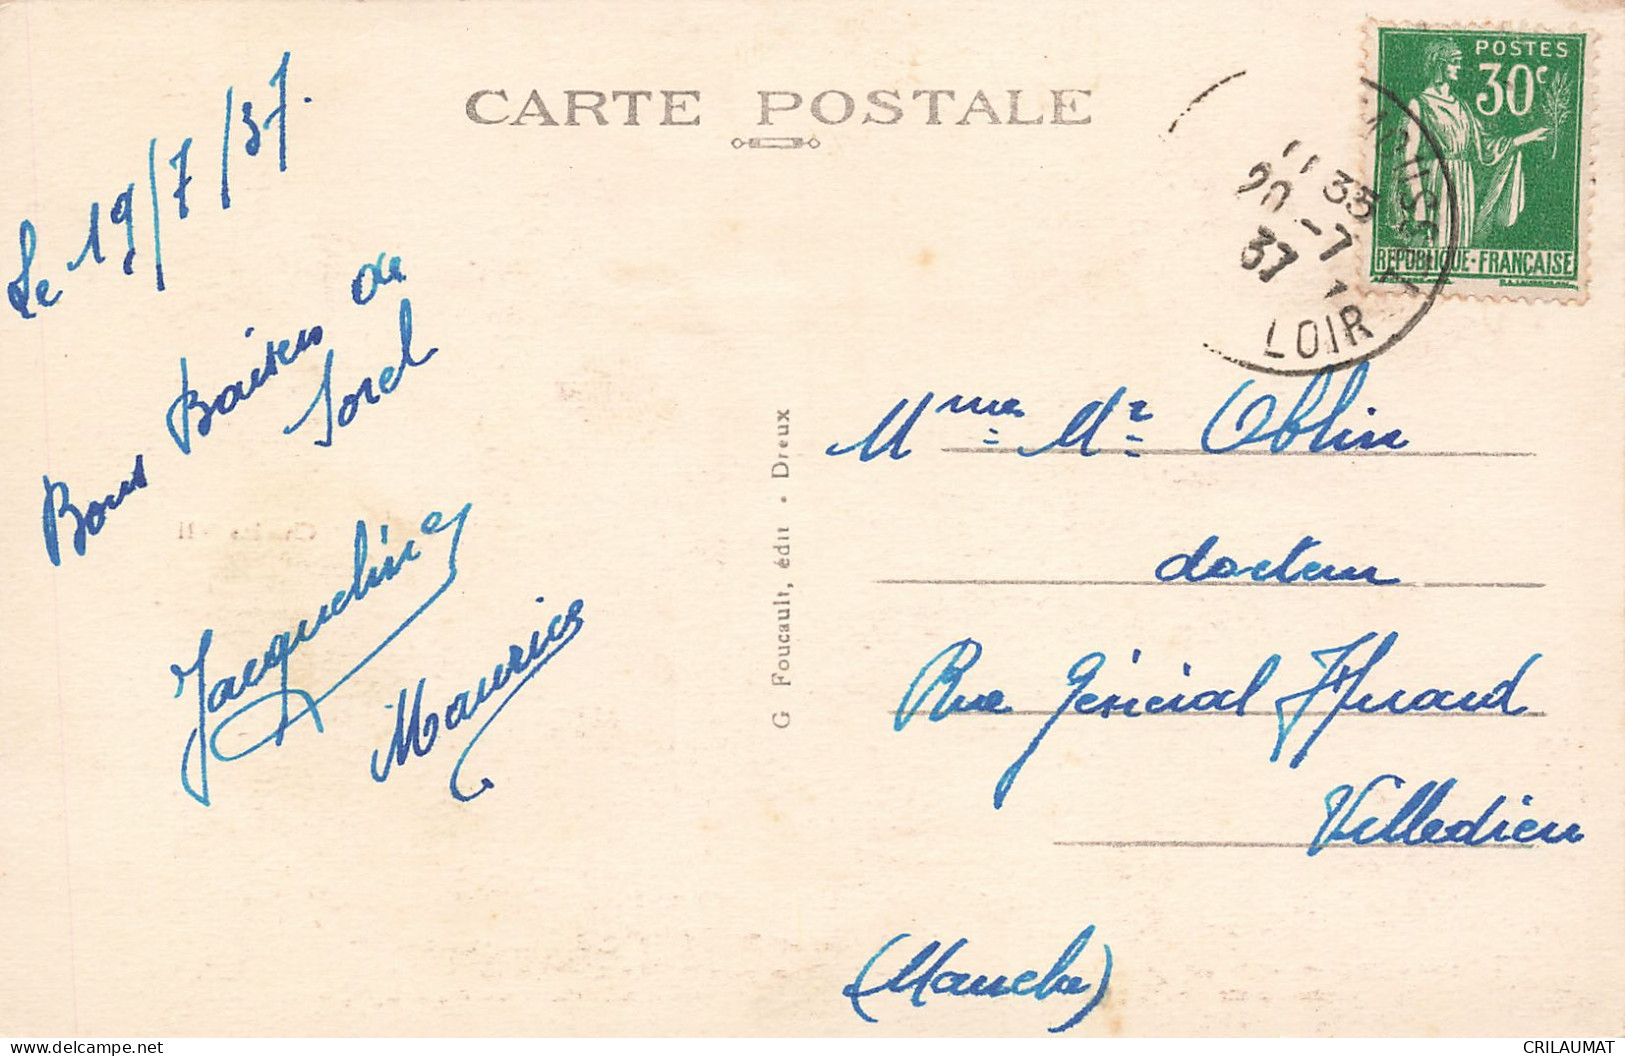 CARTE POSTALE
POSTES
30c
REPUBLIQUE-FRANÇAISE
11 35
20 -7
37
LOIR
Le 19/7/37.
Bons Baisers de
Sorel
Jacqueline
Maurice
G Foucault, édit. Dreux
Mme Mr Oblin
docteur
Rue Général Huard
Villedieu
(Manche)
delcampe.net
CRILAUMAT